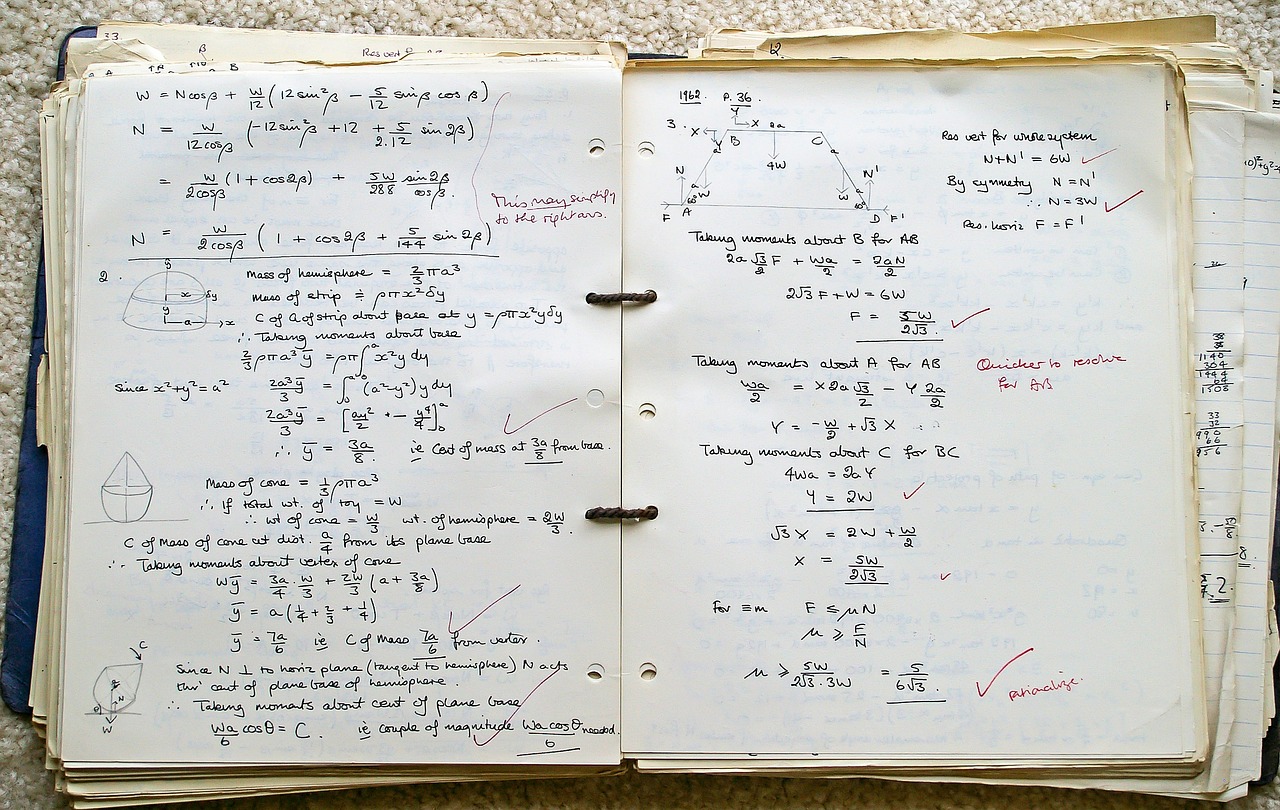 33.
β
Res vert
A B
W = N cos β + W/12 (12 sin²β − 5/12 sin β cos β)
N = W/12cosβ (−12 sin²β + 12 + 5/2.12 sin 2β)
= W/2cosβ (1 + cos 2β) + 5W/288 sin2β/cosβ.
This may simplify
to the right ans.
N = W/2cosβ (1 + cos 2β + 5/144 sin 2β)
2.
y
x δy
y
a x
Mass of hemisphere = 2/3 πa³
Mass of strip ≑ ρπx²δy
C of G of strip about base at y = ρπx²yδy
∴ Taking moments about base
2/3 ρπa³ȳ = ρπ∫₀ᵃ x²y dy
Since x²+y² = a² 2a³ȳ/3 = ∫₀ᵃ (a²−y²) y dy
2a³ȳ/3 = [ay²/2 − y⁴/4]₀ᵃ
∴ ȳ = 3a/8 ie Cent of mass at 3a/8 from base.
Mass of cone = 1/3 ρπa³
∴ If total wt. of toy = W
∴ wt of cone = W/3 wt. of hemisphere = 2W/3.
C of Mass of cone at dist. a/4 from its plane base
∴ Taking moments about vertex of cone
Wȳ = 3a/4 . W/3 + 2W/3 (a + 3a/8)
ȳ = a(1/4 + 2/3 + 1/4)
ȳ = 7a/6 ie C of Mass 7a/6 from vertex.
C
N
θ
W
Since N ⊥ to horiz plane (tangent to hemisphere) N acts
thro' cent of plane base of hemisphere.
∴ Taking moments about cent of plane base
Wa/6 cos θ = C. ie couple of magnitude Wa cos θ/6 needed.
12.
1962. P. 36.
Y
3. X X 2a
B C
a a
4W
N N'
a a
W W
60° 60°
F A D F'
Res vert for whole system
N+N' = 6W
By symmetry N = N'
∴ N = 3W
Res. horiz F = F'
Taking moments about B for AB
2a √3/2 F + Wa/2 = 2aN/2
2√3 F + W = 6W
F = 5W/2√3.
Taking moments about A for AB
Quicker to resolve
for AB
Wa/2 = X 2a √3/2 − Y 2a/2
Y = −W/2 + √3 X
Taking moments about C for BC
4Wa = 2aY
Y = 2W
√3 X = 2W + W/2
X = 5W/2√3
For ≡m F ≤ μN
μ ≥ F/N
μ ≥ 5W/2√3.3W = 5/6√3.
rationalize.
38
38
1140
304
1444
64
1508
33
32
990
66
956
8.
2.